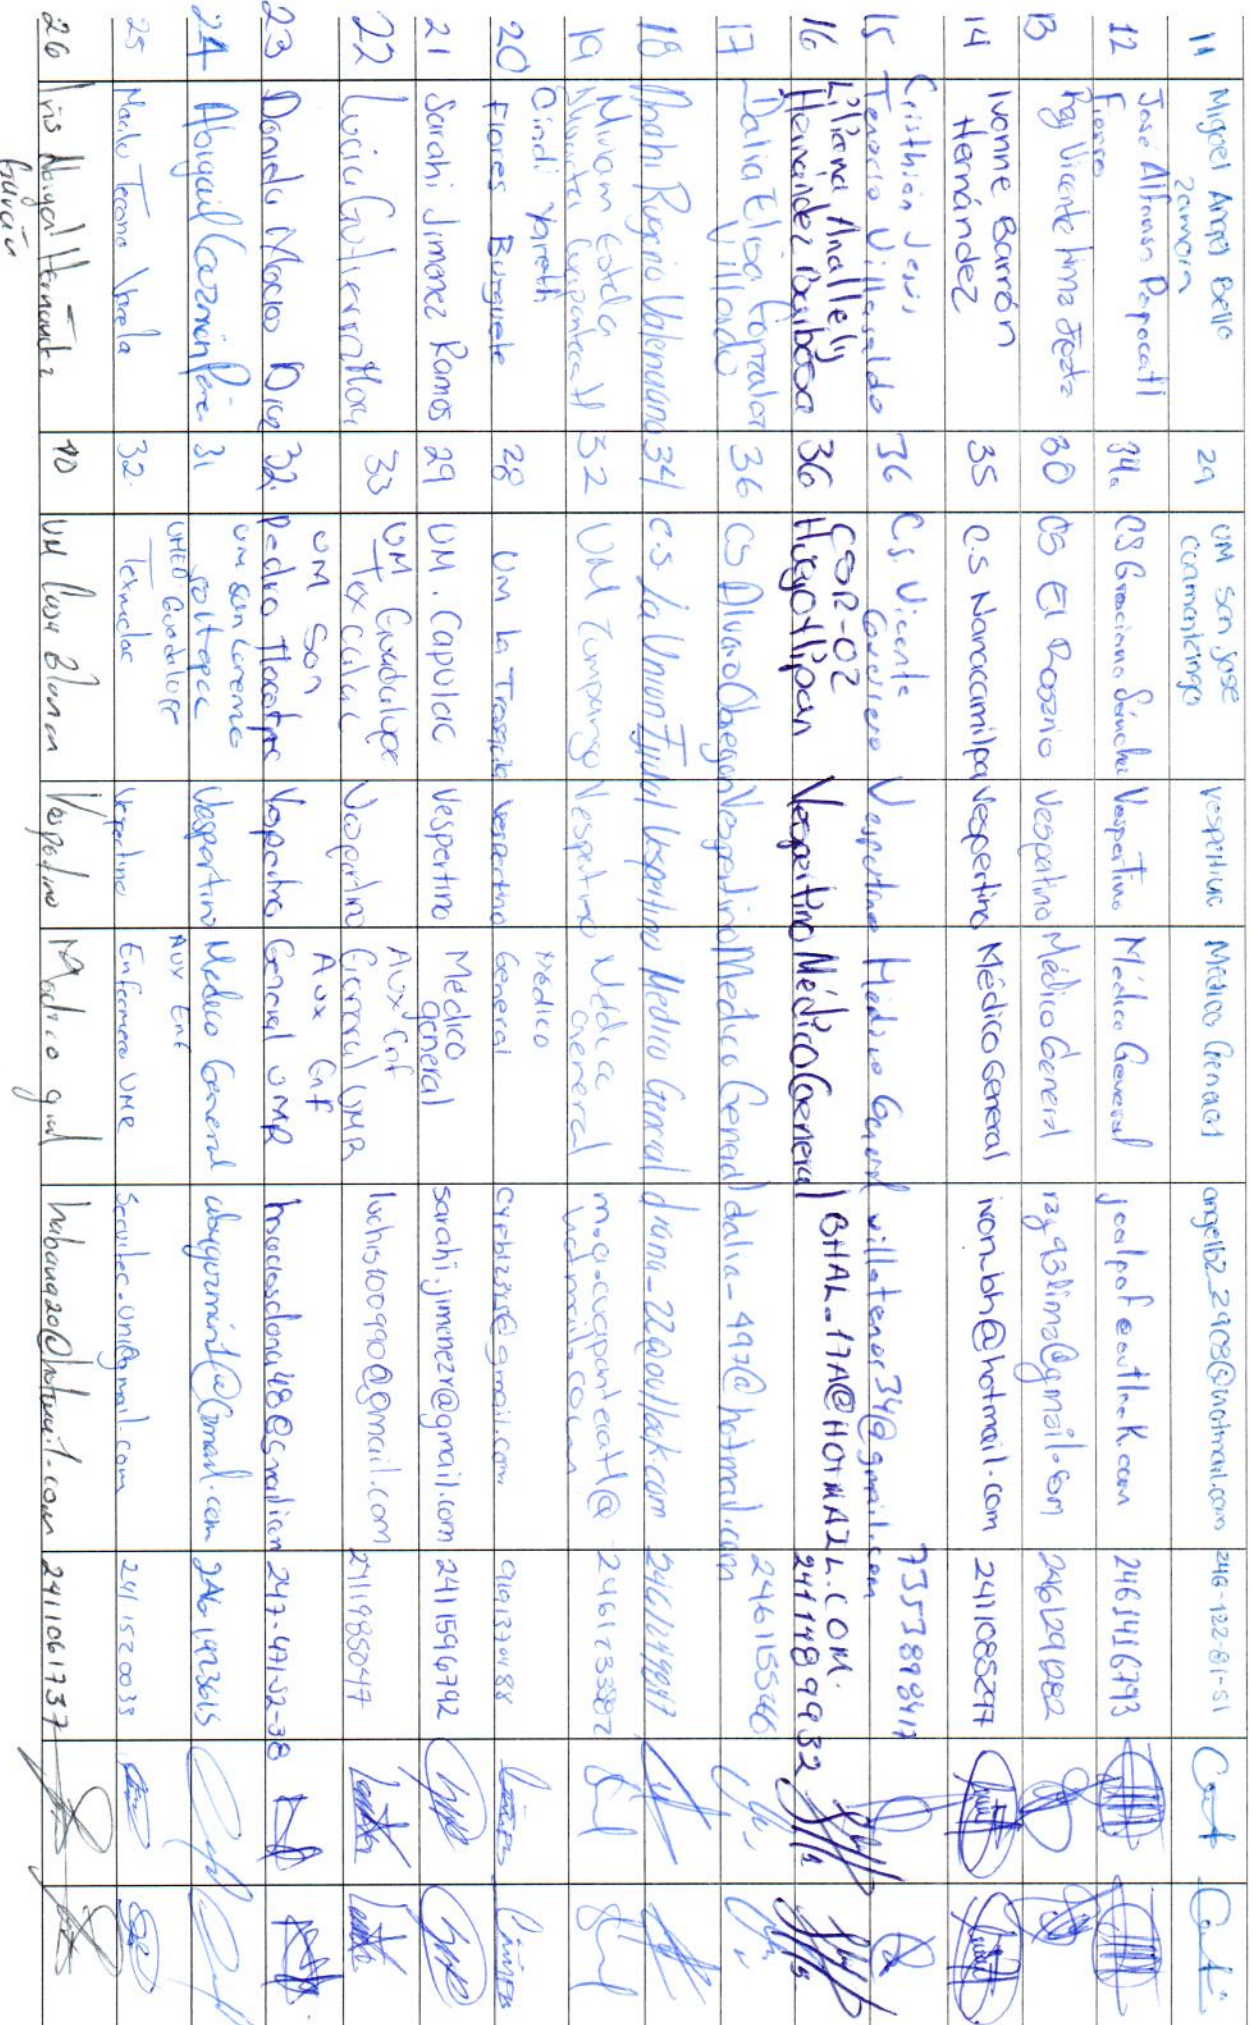 11 Miguel Angel Bello Zamora 29 UM San Jose Coamantzingo Vespertino Médico General angelb2_2908@hotmail.com 246-122-81-51
12 José Alfonso Papocatl Fierro 34 CS Graciano Sánchez Vespertino Médico General jealpof@outlook.com 2461416793
13 Ray Vicente Lima 30 CS El Rosario Vespertino Médico General ray93lima@gmail.com 2461291282
14 Ivonne Barrón Hernández 35 C.S Nanacamilpa Vespertino Médico General ivon_bh@hotmail.com 2411085297
15 Cristhian Jesús Tenorio Villasaldo 36 C.S. Vicente Guerrero Vespertino Médico General villatenor34@gmail.com 7353898417
16 Liliana Anallely Hernández Barbosa 36 CSR-02 Hueyotlipan Vespertino Médico General BHAL_17A@HOTMAIL.COM. 2411489932
17 Dalia Elisa González Villado 36 CS Alvaro Obregon Vespertino Medico General dalia_497@hotmail.com 2461155466
18 Anahi Rugerio 34 C.S La Union Ejidal Vespertino Medico General drana_22@outlook.com
19 Miriam Estela Cuapantecatl 32 UM Zumpango Vespertino Médica General m.a.cuapantecatl@hotmail.com 2461733582
20 Cindi Yareth Flores Burguete 28 UM la Trasquila Vespertino Médico General 9191370188
21 Sarahi Jimenez Ramos 29 UM. Capulac Vespertino Médico general sarahi.jimenezr@gmail.com 2411596792
22 Lucia Gutierrez 33 UM Guadalupe Texcalac Vespertino Aux Enf General UMR luchis100990@gmail.com 2411985047
23 Daniela Macias Diaz 32. UM San Pedro Tlacotepec Vespertino Aux Enf General UMR 247-471-52-38
24 Abigail Guzmán Pérez 31 UM San Lorenzo Soltepec Vespertino Medico General abiguzman1@Gmail.com 2461923615
25 32. UMED Guadalupe Texmolac Vespertino Aux Enf Enfermera UMR 2411520033
26 Iris Nayeli Hernandez Garcia UM Casa Blanca Vespertino Medico gral habana20@hotmail.com 2411061737